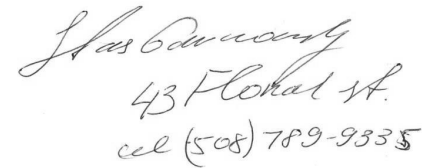 43 Floral st.
cel (508) 789-9335